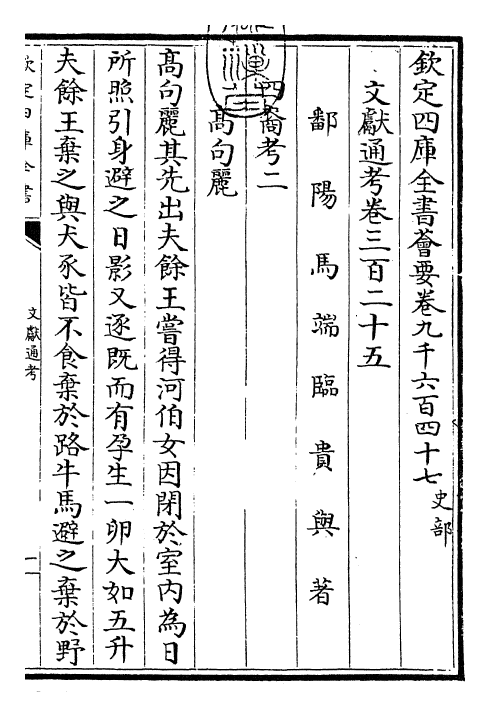 欽定四庫全書薈要卷九千六百四十七史部
文獻通考卷三百二十五
鄱陽馬端臨貴與著
四裔考二
高句麗
高句麗其先出夫餘王嘗得河伯女因閉於室內為日
所照引身避之日影又逐既而有孕生一卵大如五升
夫餘王棄之與犬豕皆不食棄於路牛馬避之棄於野
欽定四庫全書
文獻通考
一